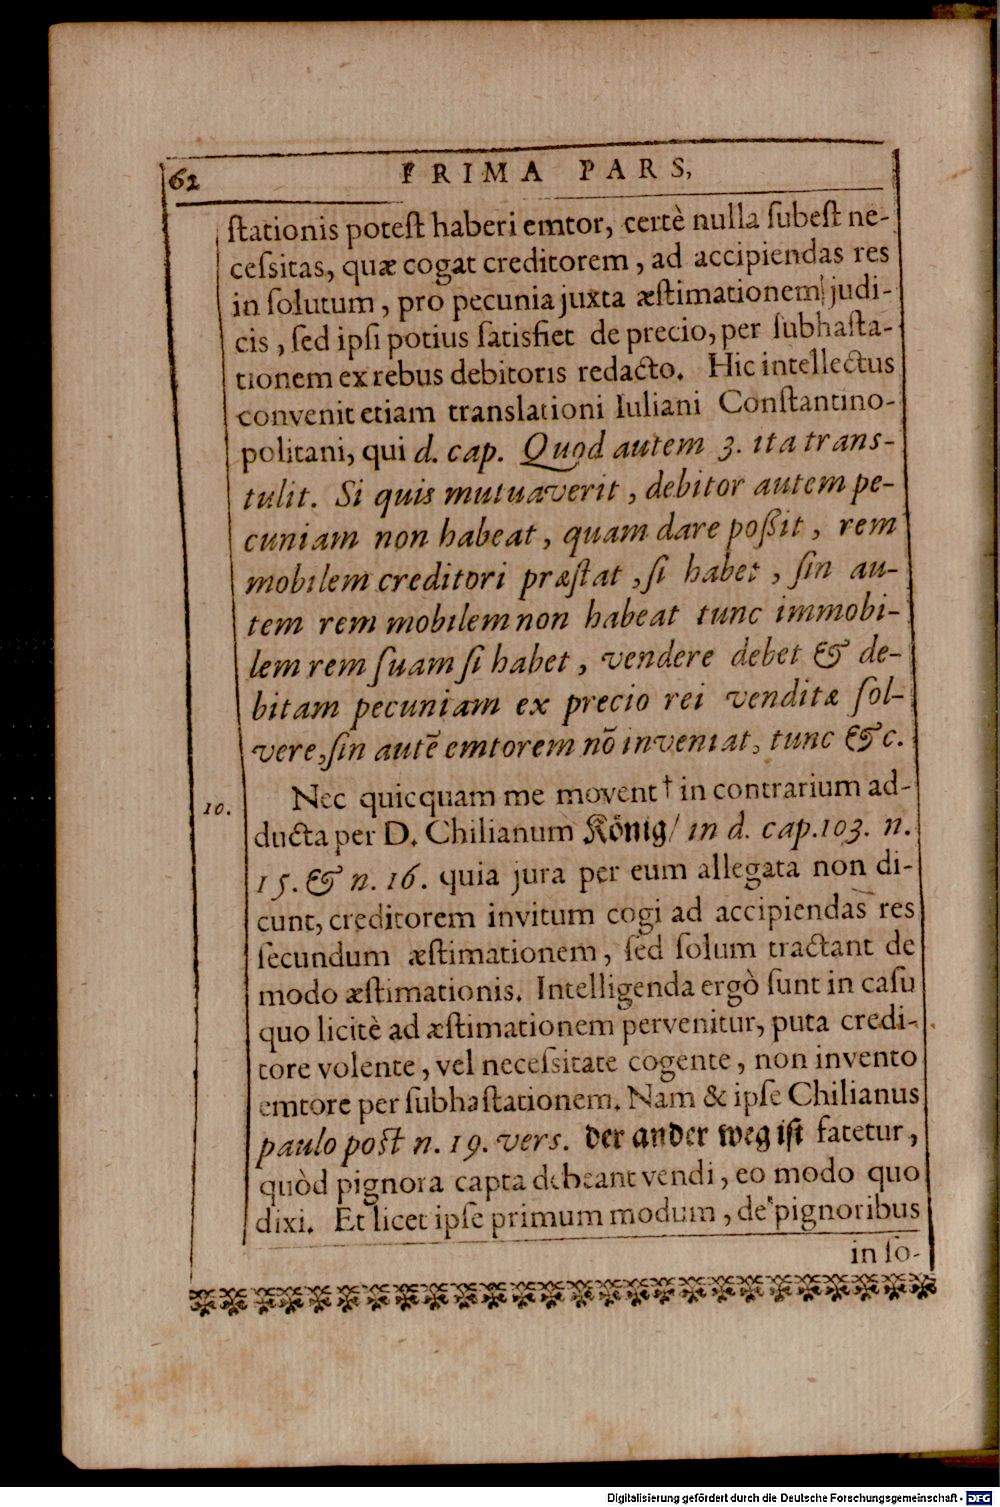 62 PRIMA PARS,
ſtationis poteſt haberi emtor, certè nulla ſubeſt ne-
ceſsitas, quæ cogat creditorem, ad accipiendas res
in ſolutum, pro pecunia juxta æſtimationem judi-
cis, ſed ipſi potius ſatisfiet de precio, per ſubhaſta-
tionem ex rebus debitoris redacto. Hic intellectus
convenit etiam translationi Iuliani Conſtantino-
politani, qui d. cap. Quod autem 3. ita trans-
tulit. Si quis mutuaverit, debitor autem pe-
cuniam non habeat, quam dare poßit, rem
mobilem creditori præſtat, ſi habet, ſin au-
tem rem mobilem non habeat tunc immobi-
lem rem ſuam ſi habet, vendere debet & de-
bitam pecuniam ex precio rei venditæ ſol-
vere, ſin autē emtorem nō inveniat, tunc &c.
10. Nec quicquam me movent † in contrarium ad-
ducta per D. Chilianum König/ in d. cap. 103. n.
15. & n. 16. quia jura per eum allegata non di-
cunt, creditorem invitum cogi ad accipiendas res
ſecundum æſtimationem, ſed ſolum tractant de
modo æſtimationis. Intelligenda ergò ſunt in caſu
quo licitè ad æſtimationem pervenitur, puta credi-
tore volente, vel neceſsitate cogente, non invento
emtore per ſubhaſtationem. Nam & ipſe Chilianus
paulo poſt n. 19. verſ. der ander weg iſt fatetur,
quòd pignora capta debeant vendi, eo modo quo
dixi. Et licet ipſe primum modum, de pignoribus
in ſo-
Digitalisierung gefördert durch die Deutsche Forschungsgemeinschaft - DFG